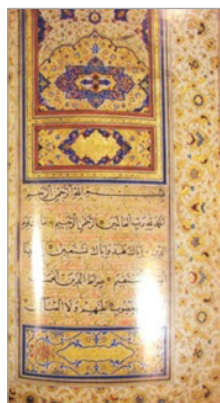 بسم الله الرحمن الرحيم
الحمد لله رب العالمين الرحمن الرحيم يوم
الدين إياك نعبد وإياك نستعين
المستقيم صراط الذين أنعمت
المغضوب عليهم ولا الضالين